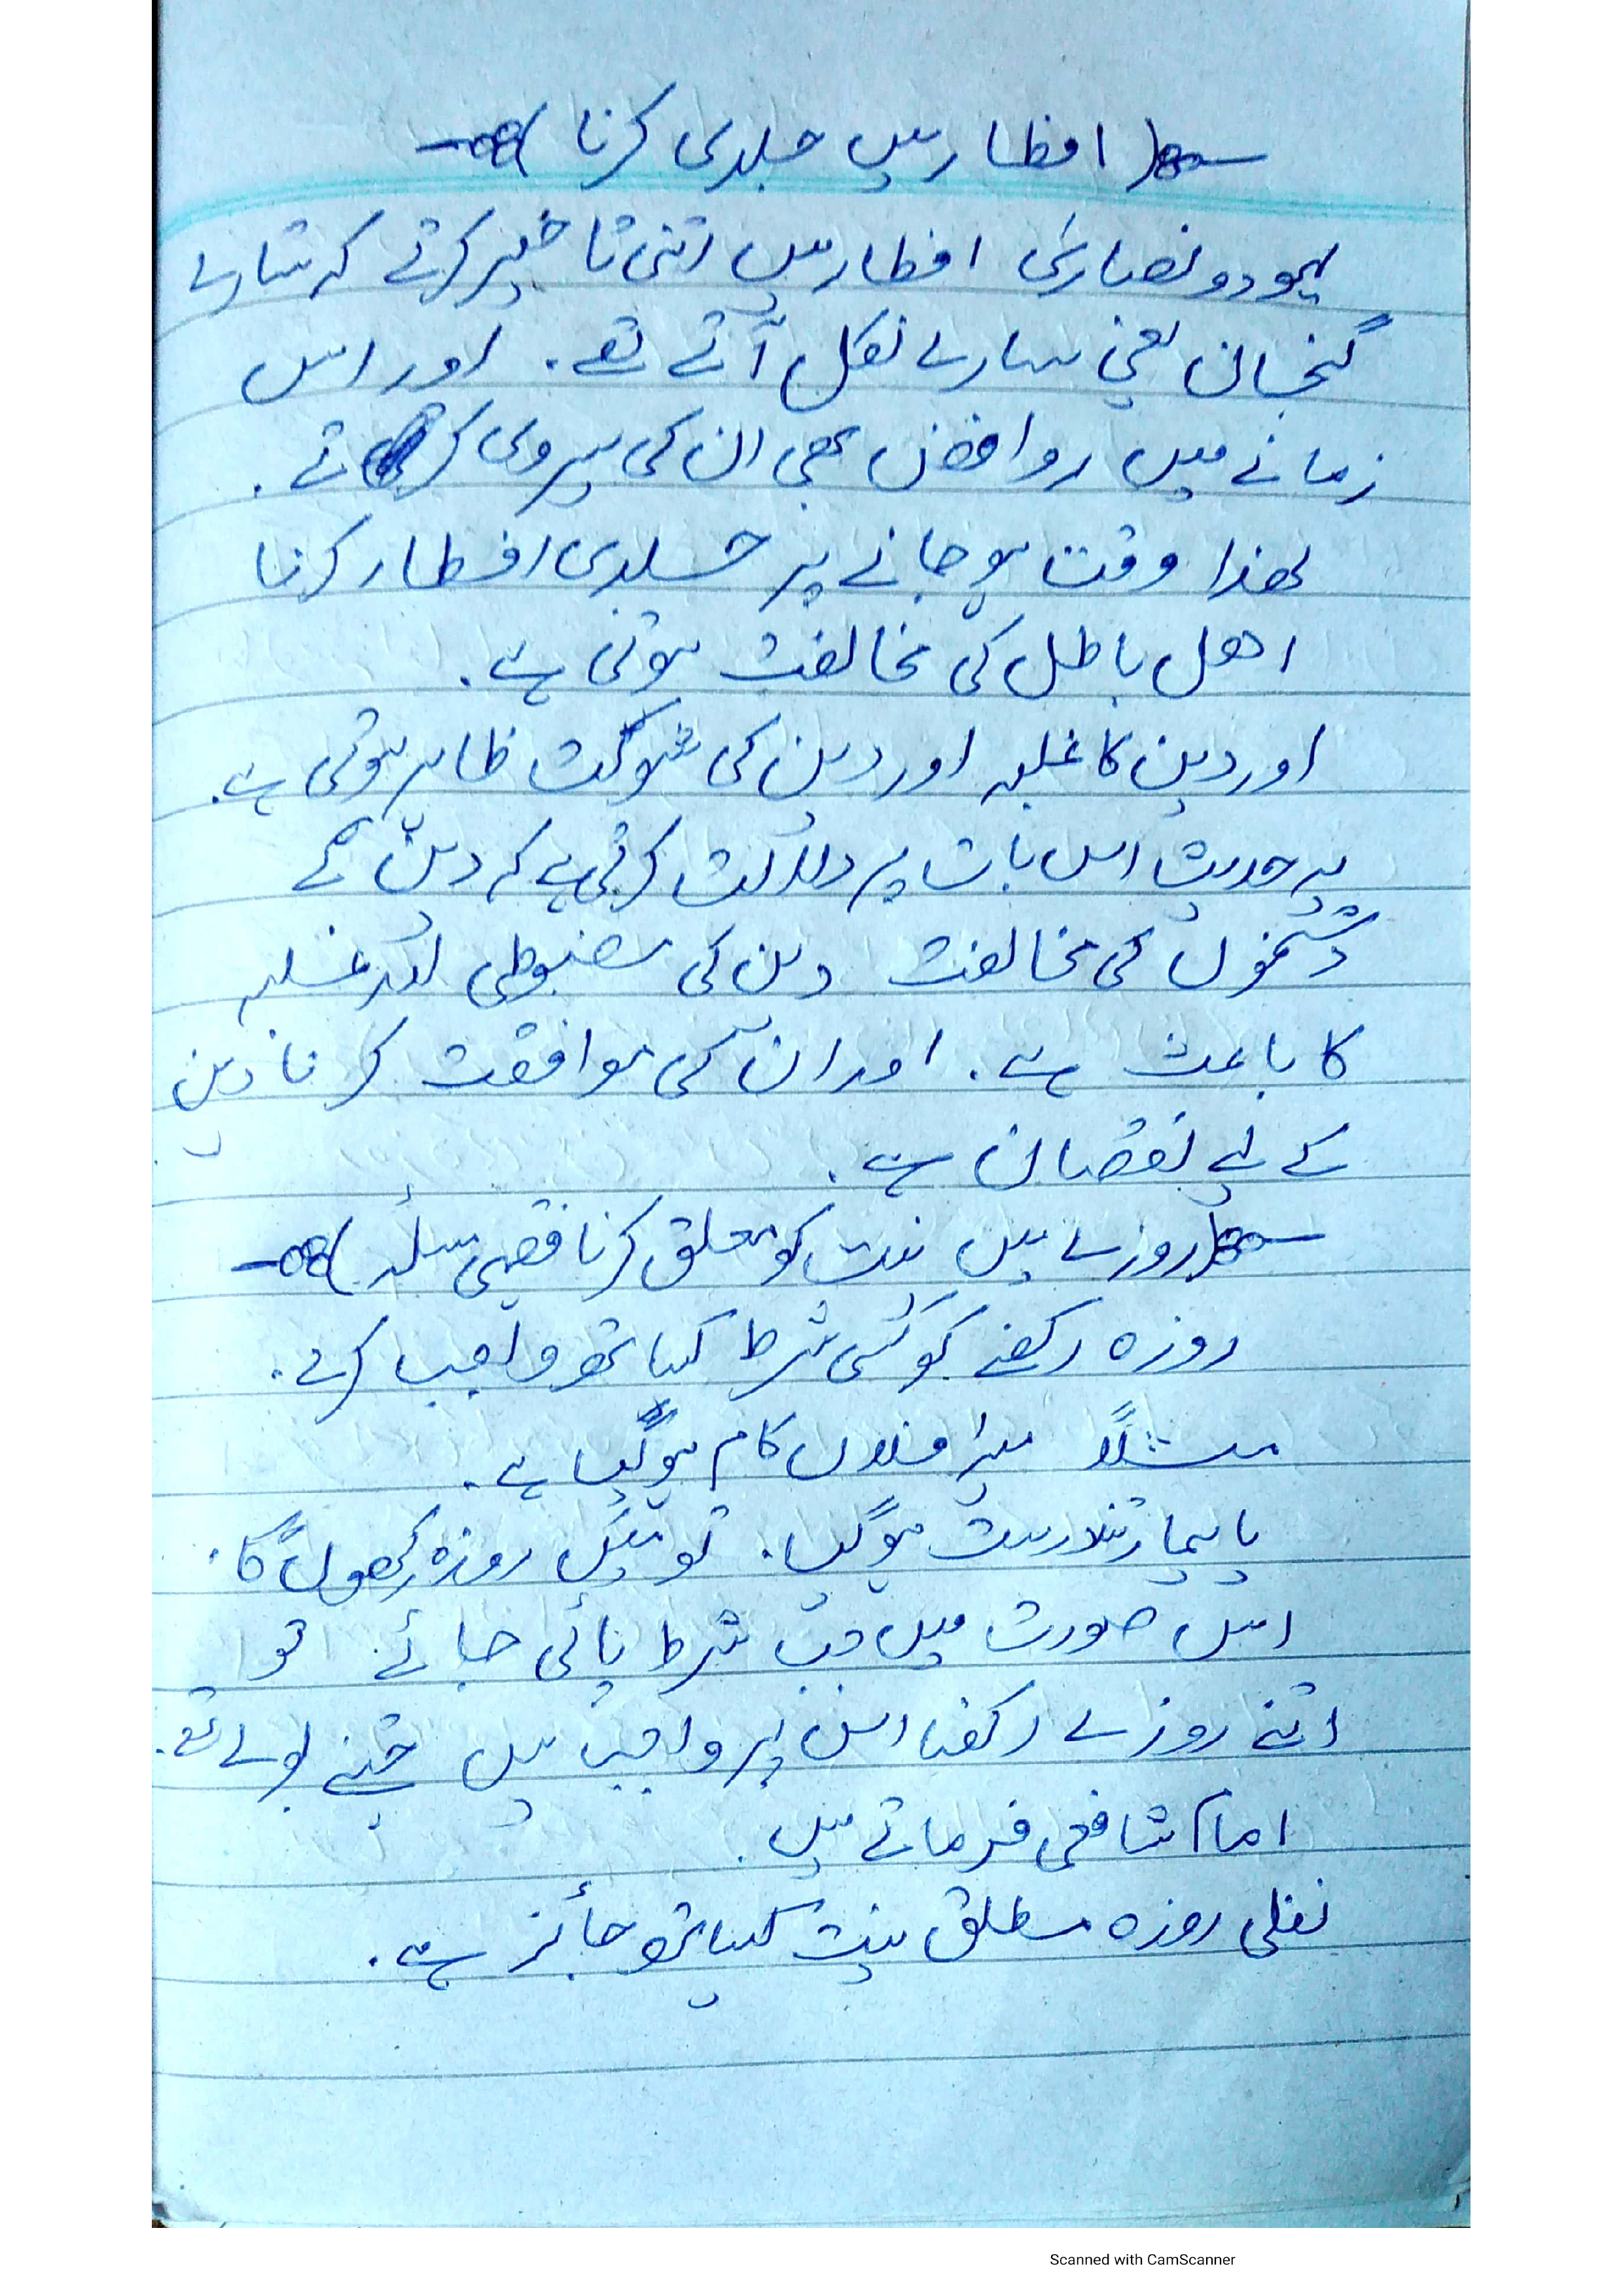 ( افطار میں جلدی کرنا )
یہود و نصاریٰ افطار میں اتنی تاخیر کرتے کہ ستارے
گنجان یعنی سارے نکل آتے تھے۔ اور اس
زمانے میں روافض بھی ان کی پیروی کرتے۔
لھذا وقت ہو جانے پر جلدی افطار کرنا
اھل باطل کی مخالفت ہوتی ہے۔
اور دین کا غلبہ اور دین کی شوکت ظاہر ہوتی ہے۔
یہ حدیث اس بات پر دلالت کرتی ہے کہ دین کے
دشمنوں کی مخالفت دین کی مضبوطی اور غلبہ
کا باعث ہے۔ اور ان کی موافقت کرنا دین
کے لیے نقصان ہے۔
( روزے میں نیت کو معلق کرنا فقہی مسئلہ )
روزہ رکھنے کو کسی شرط کیساتھ واجب کرے۔
مثلاً میرا فلاں کام ہو گیا ہے۔
یا بیمار تندرست ہو گیا۔ تو میں روزہ رکھوں گا۔
اس صورت میں جب شرط پائی جائے تو
اتنے روزے رکھنا اس پر واجب ہیں جتنے بولے تھے۔
امام شافعی فرماتے ہیں۔
نفلی روزہ مطلق نیت کیساتھ جائز ہے۔
Scanned with CamScanner